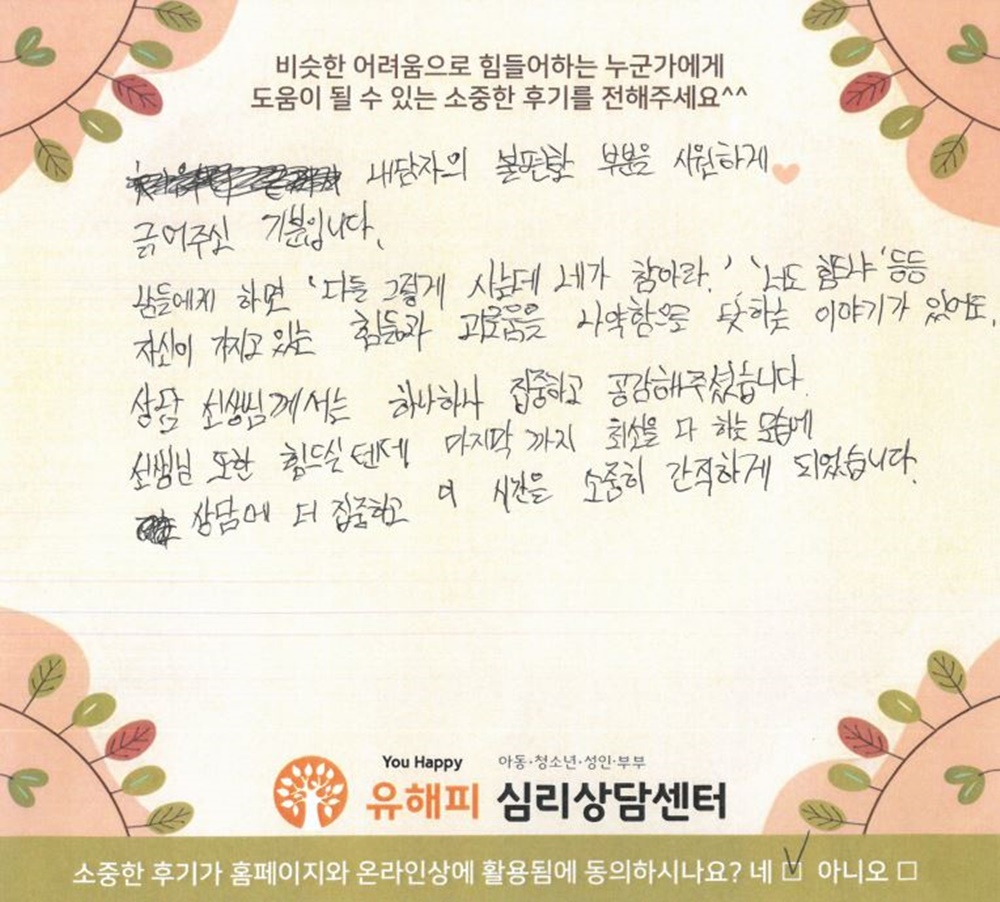 비슷한 어려움으로 힘들어하는 누군가에게
도움이 될 수 있는 소중한 후기를 전해주세요^^
내담자의 불편함 부분을 시원하게
긁어주신 기분입니다.
남들에게 하면 '다들 그렇게 사는데 네가 참아라.' '너도 힘드냐' 등등
자신이 가지고 있는 힘듦과 괴로움을 나약함으로 못하는 이야기가 있어도,
상담 선생님께서는 하나하나 집중하고 공감해주셨습니다.
선생님 또한 힘드실 텐데 마지막 까지 최선을 다 하는 모습에
상담에 더 집중하고 이 시간을 소중히 간직하게 되었습니다.
You Happy 아동·청소년·성인·부부
유해피 심리상담센터
소중한 후기가 홈페이지와 온라인상에 활용됨에 동의하시나요? 네 아니오